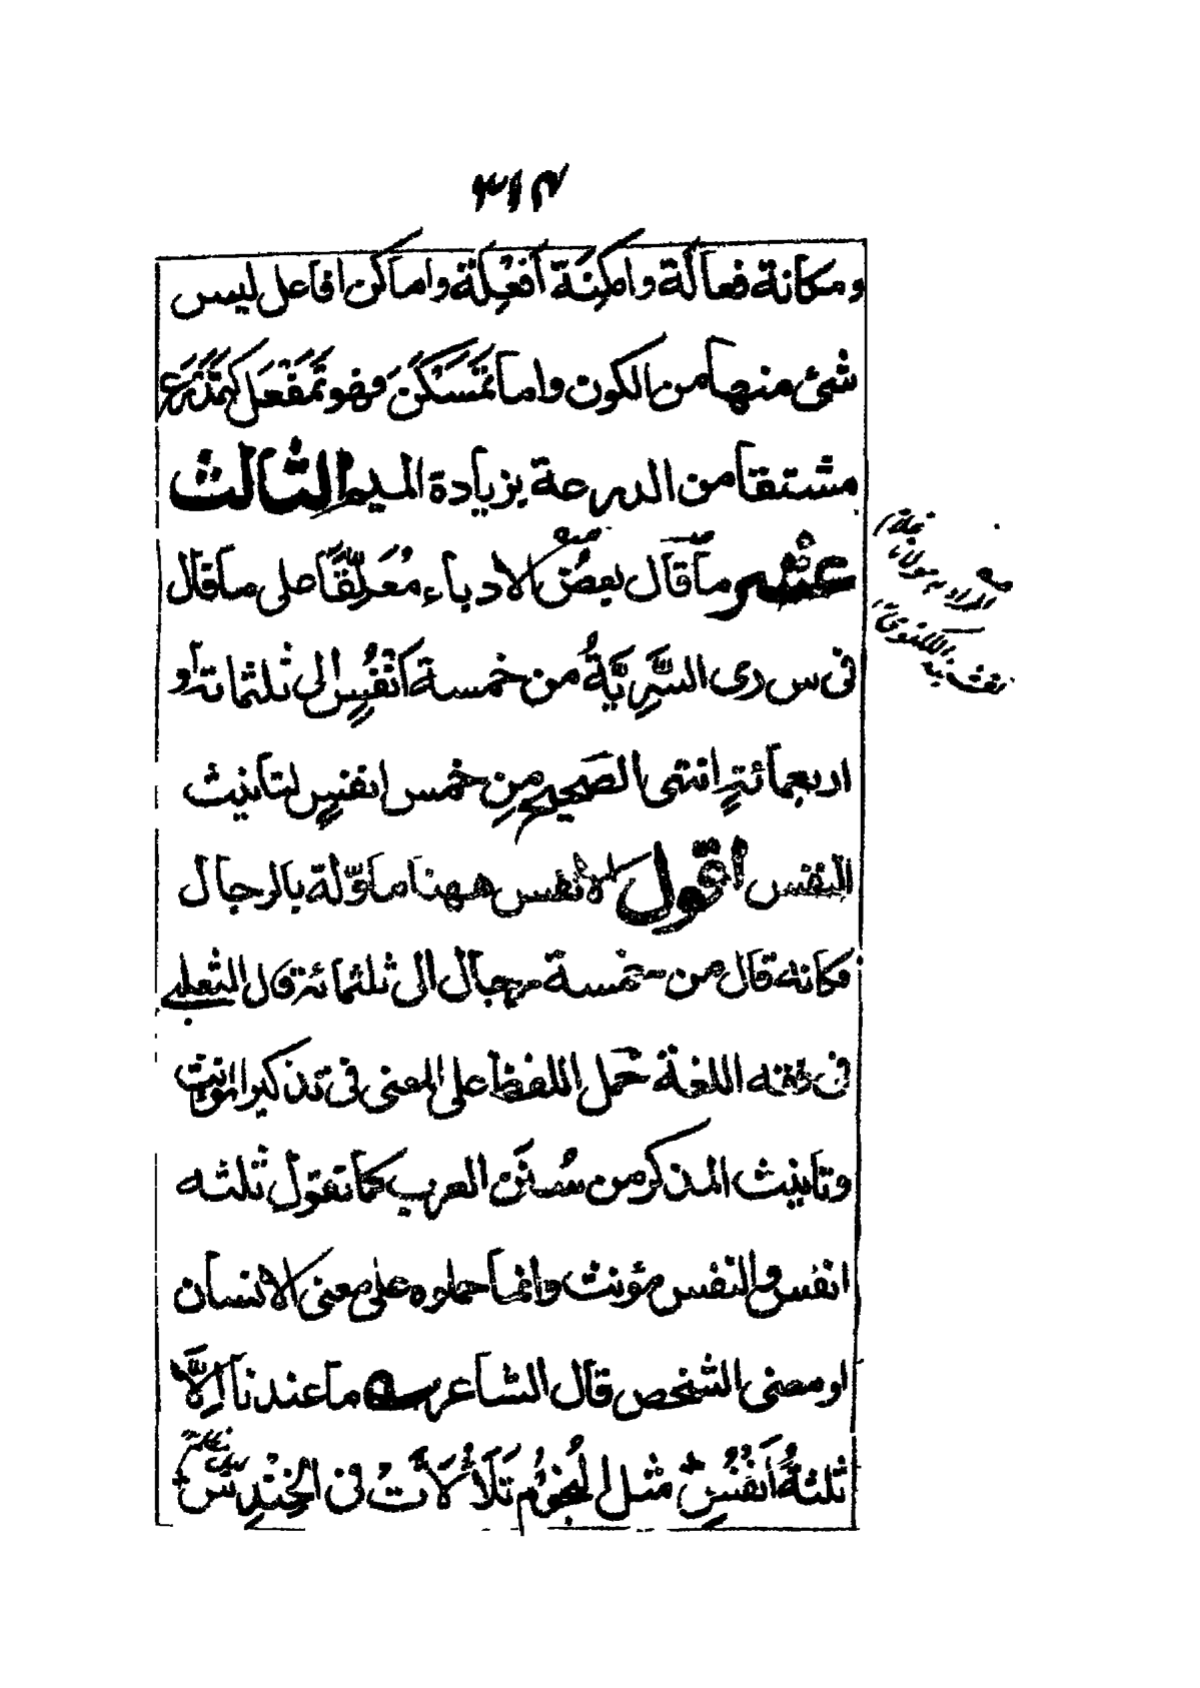 ٣١٢
ومكانة فعالة وامكِنَة اَفْعِلَة واماكن افاعل ليس
شئ منها من الكون واما تَمَسْكَنَ فهو تَمَفْعَلَ كتَمَدْرَعَ
مشتقا من الدرعة بزيادة الميم الثالث
عشر ما قال بعض الادباء مُعَلِّقًا على ما قال
فى س رى السَّرِيَّةُ من خمسة اَنْفُسٍ الى ثلثمائة او
اربعمائةٍ انتهى الصحيح مِن خمس انفسٍ لتانيث
النفس اقول الانفس ههنا ماَوّلة بالرجال
فكانه قال من خمسة رجال الى ثلثمائة قال الثعلبى
فى فقه اللغة حمل اللفظ على المعنى فى تذكير المؤنث
وتانيث المذكر من سُنَن العرب كما تقول ثلثه
انفس والنفس مؤنث وانما حملوه على معنى الانسان
او معنى الشخص قال الشاعر ؎ ما عندنا اِلَّا
ثلثةُ اَنْفُسٍ مثل النجُومِ تَلَأْلَأَتْ فى الحِنْدِسِ
المراد مولانا
اللكنوى